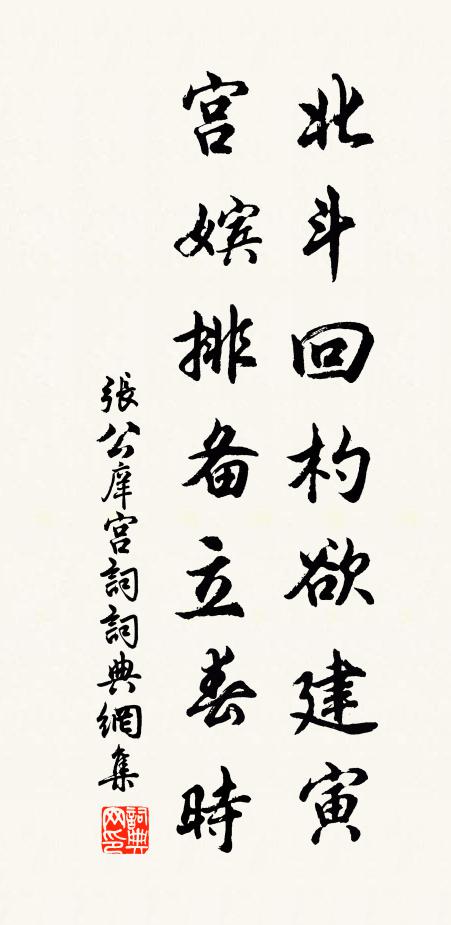 北斗回杓欲建寅
宫嫔排备立春時
張公庠宫詞詞典網集
詞典网印